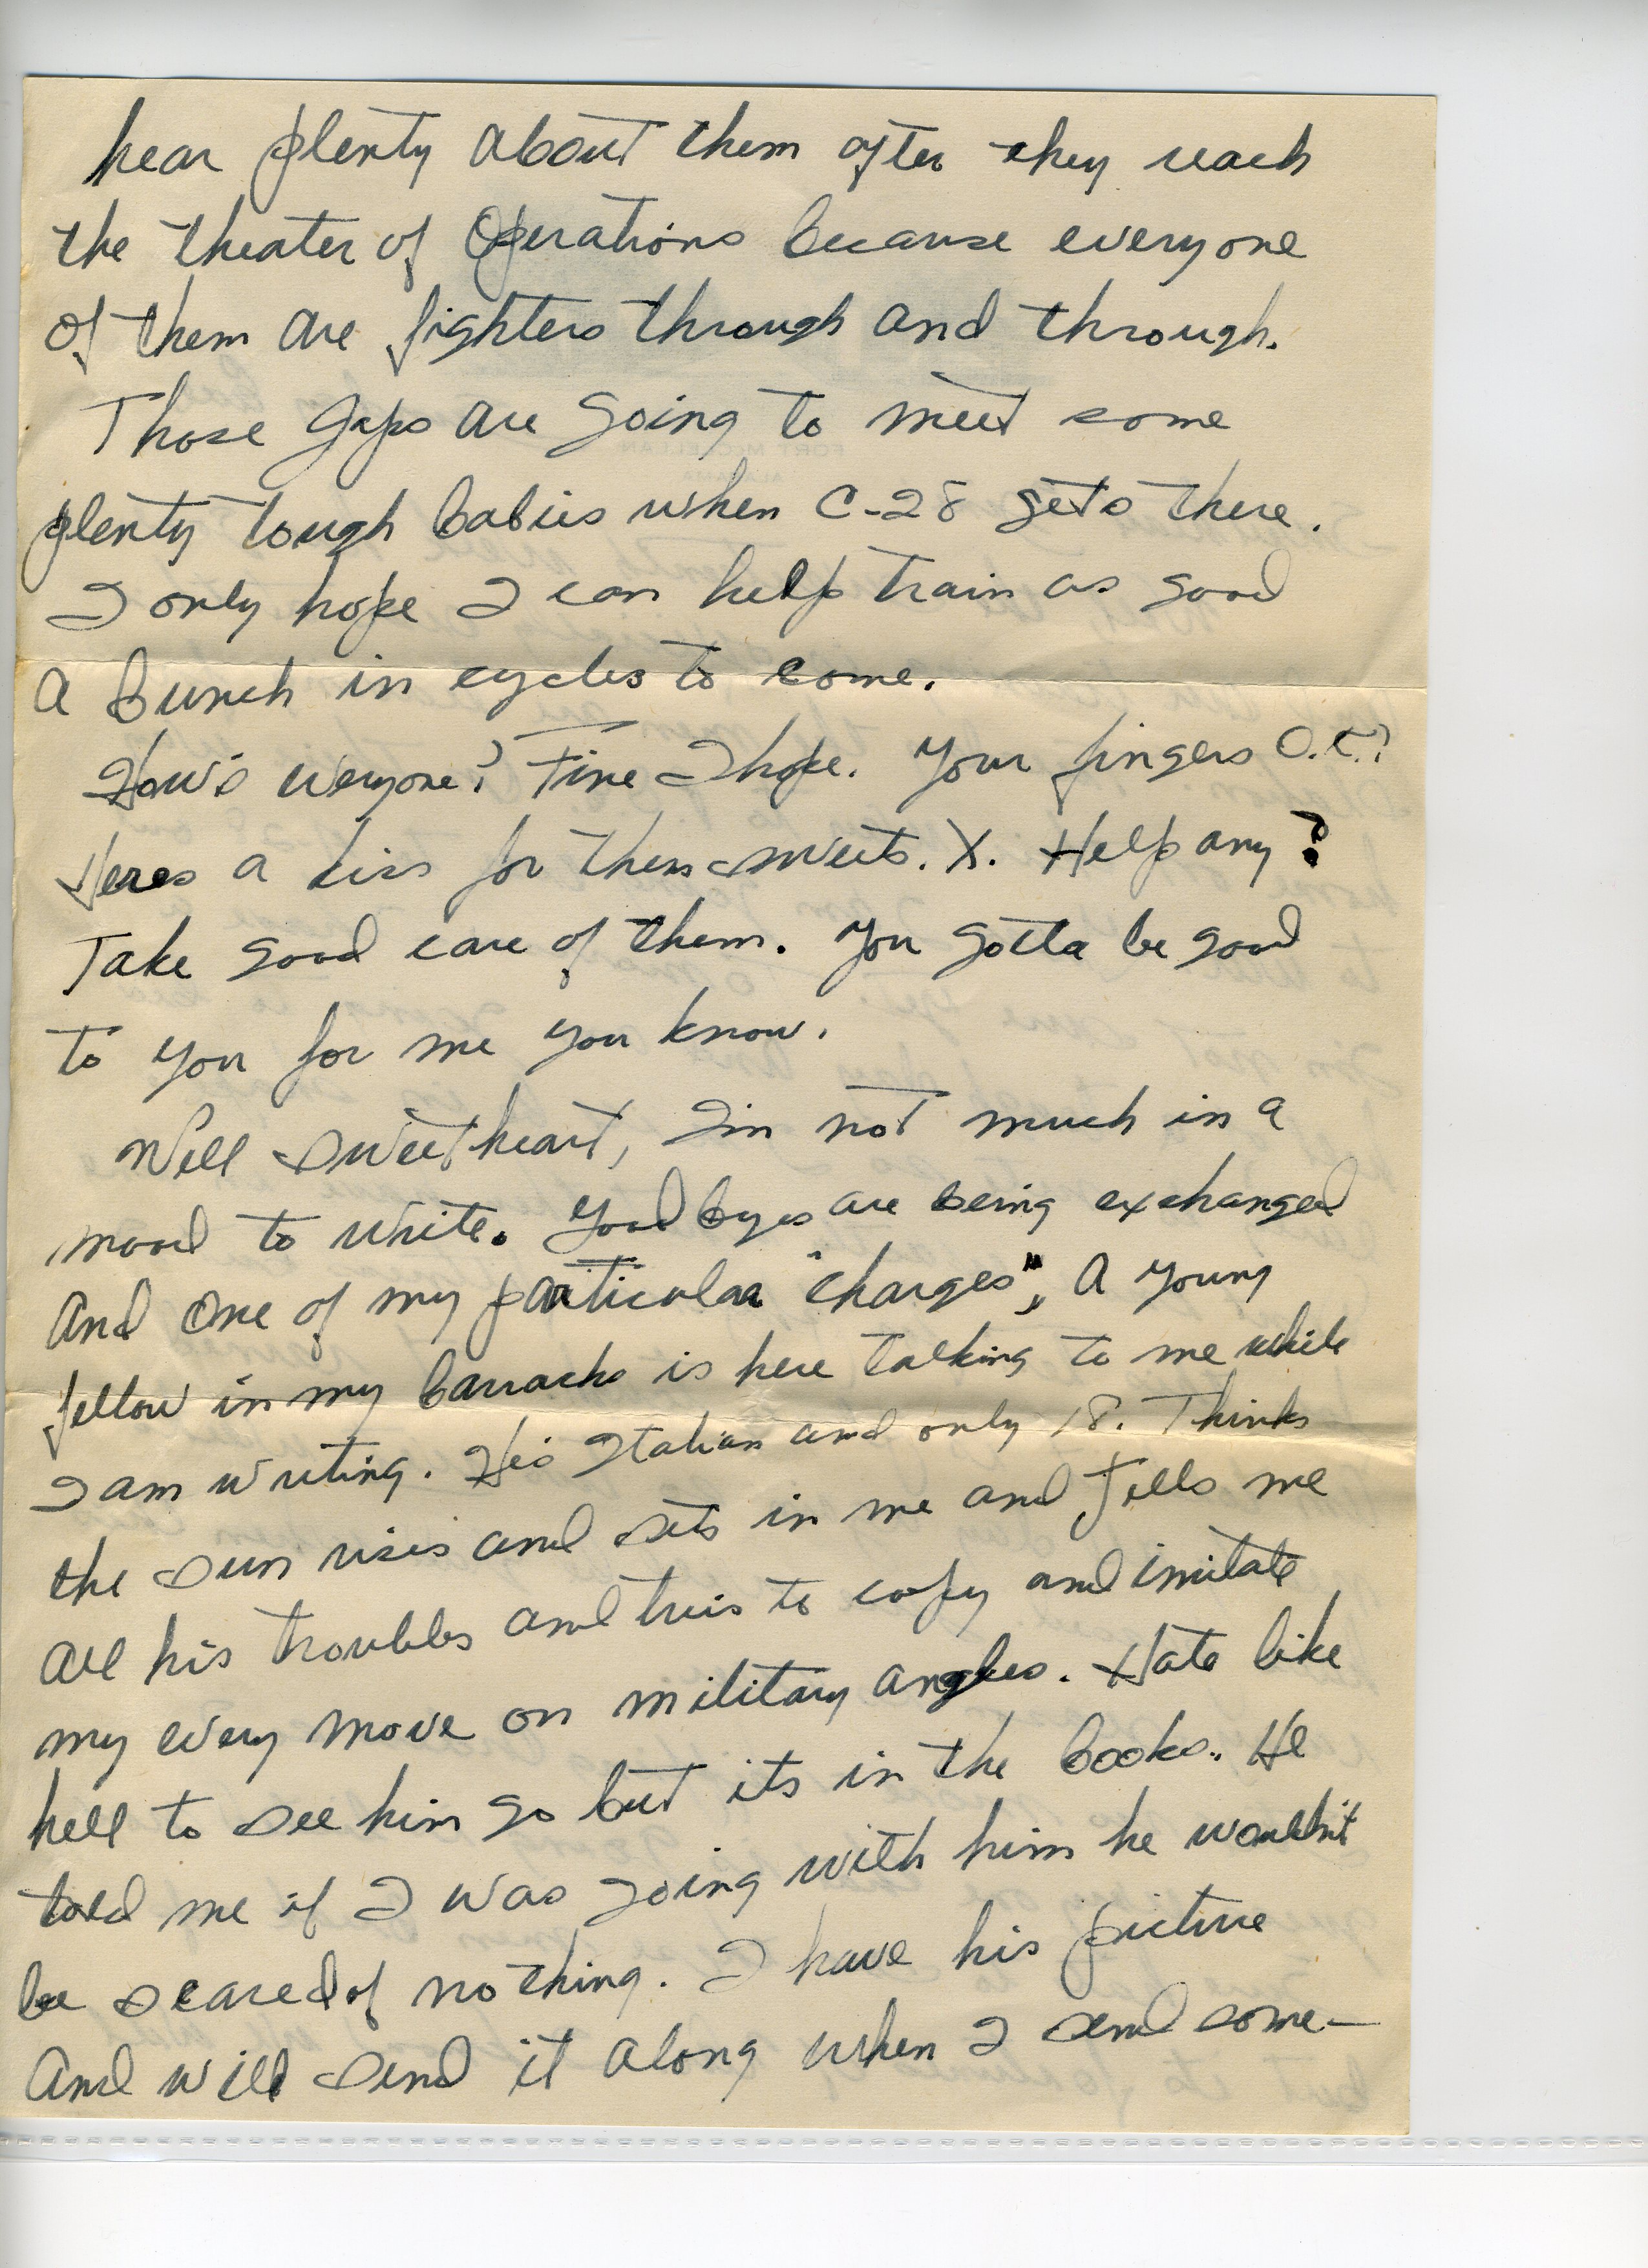 hear plenty about them after they reach
the theater of Operations because everyone
of them are fighters through and through.
Those Japs are going to meet some
plenty tough babies when C-28 gets there.
I only hope I can help train as good
a bunch in cycles to come.
How's everyone? Fine I hope. Your fingers O.K.?
Heres a kiss for them sweets. X. Help any?
Take good care of them. You gotta be good
to you for me you know.
Well sweetheart, I'm not much in a
mood to write. Good byes are being exchanged
and one of my particular "charges", a young
fellow in my barracks is here talking to me while
I am writing. He's Italian and only 18. Thinks
the sun rises and sets in me and tells me
all his troubles and tries to copy and imitate
my every move on military angles. Hate like
hell to see him go but its in the books. He
told me if I was going with him he wouldn't
be scared of nothing. I have his picture
and will send it along when I send some-